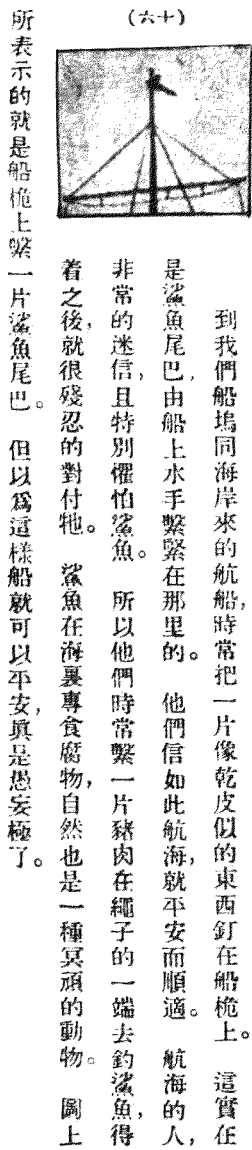 (六十)
到我們船塢同海岸來的航船，時常把一片像乾皮似的東西釘在船桅上。 這實在
是鯊魚尾巴，由船上水手繫緊在那里的。 他們信如此航海，就平安而順適。 航海的人，
非常的迷信，且特別懼怕鯊魚。 所以他們時常繫一片豬肉在繩子的一端去釣鯊魚，得
着之後，就很殘忍的對付牠。 鯊魚在海裏專食腐物，自然也是一種冥頑的動物。 圖上
所表示的就是船桅上繫一片鯊魚尾巴。 但以爲這樣船就可以平安，眞是愚妄極了。